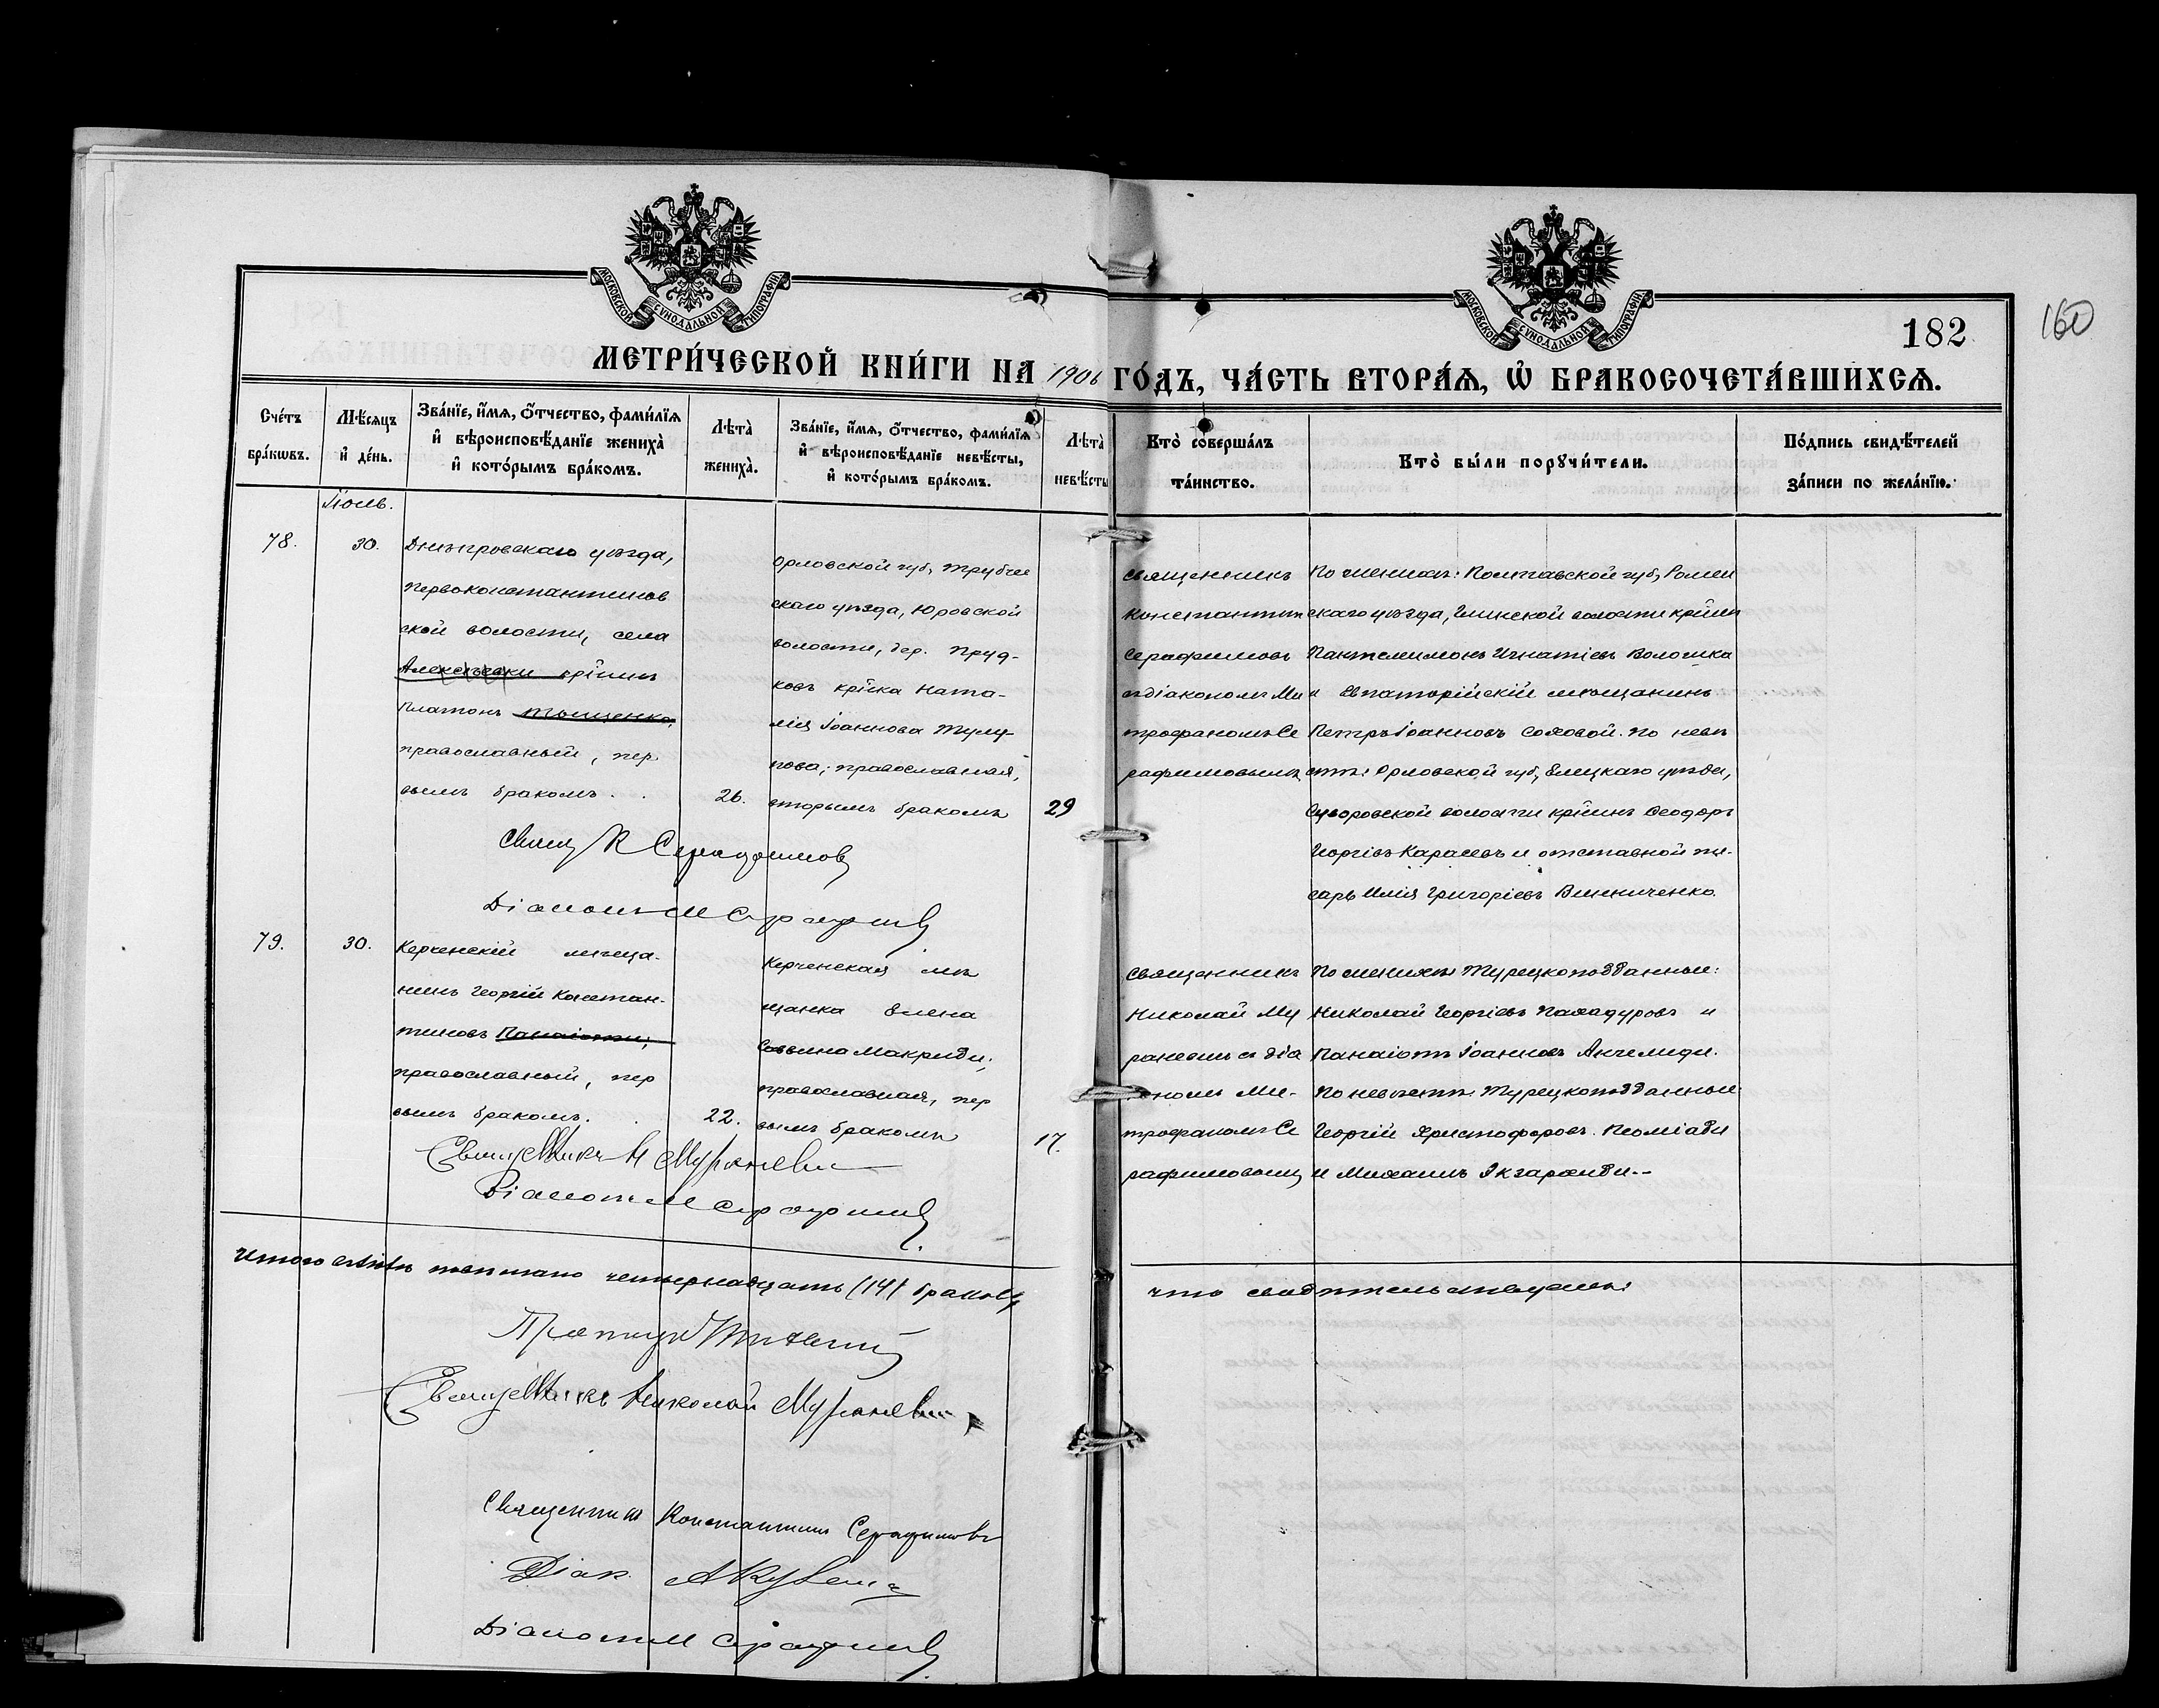 МОСКОВСКОЙ СѴНОДАЛЬНОЙ ТИПОГРАФІИ.
МОСКОВСКОЙ СѴНОДАЛЬНОЙ ТИПОГРАФІИ.
182
160
МЕТРИ́ЧЕСКОЙ КНИ́ГИ НА 1906 ГО́ДЪ, ЧА́СТЬ ВТОРА́Я, Ѡ БРАКОСОЧЕТА́ВШИХСЯ.
Сче́тъ бра́кѡвъ.
Мѣ́сяцъ и де́нь.
Зва́нїе, и́мя, ѻ́тчество, фами́лїя и вѣроисповѣ́данїе жениха̀ и кото́рымъ бра́комъ.
Лѣта̀ жениха̀.
Зва́нїе, и́мя, ѻ́тчество, фами́лїя и вѣроисповѣ́данїе невѣ́сты, и кото́рымъ бра́комъ.
Лѣта̀ невѣ́сты
Кто̀ соверша́лъ та́инство.
Кто̀ бы́ли порꙋчи́тели.
По́дпись свидѣ́телей за́писи по жела́нїю.
Іюль.
78.
30.
Днѣпровскаго уѣзда,
Первоконстантинов
ской волости, села
Алексѣевки крѣинъ
Платонъ Тищенко,
православный, пер
вымъ бракомъ.
26.
Орловской губ, Трубчев
скаго уѣзда, Юровской
волости, дер. Пруд-
ковъ крѣска Ната-
лія Іоаннова Тулу-
пова; православная,
вторымъ бракомъ
29
Священникъ
Константинъ
Серафимовъ
съ діакономъ Ми
трофаномъ Се
рафимовымъ
По женихѣ: Полтавской губ, Ромен
скаго уѣзда, Глинской волости крѣинъ
Пантелимонъ Игнатіевъ Волошка
и Евпаторійскій мѣщанинъ
Петръ Іоанновъ Соловой. По невѣ
стѣ: Орловской губ, Елецкаго уѣзда,
Суворовской волости крѣинъ Ѳеодоръ
Георгіевъ Карасевъ и отставной пи-
сарь Илія Григоріевъ Винниченко.
Свящ К Серафимовъ
Діаконъ М Серафимовъ
79.
30.
Керченскій мѣща-
нинъ Георгій Констан-
тиновъ Панаіоти;
православный, пер
вымъ бракомъ.
22.
Керченская мѣ
щанка Елена
Саввина Макриди;
православная, пер
вымъ бракомъ
17.
Священникъ
Николай Му
раневичъ съ діа
кономъ Ми-
трофаномъ Се
рафимовымъ
По женихѣ: Турецкоподданные:
Николай Георгіевъ и
Панаіотъ Іоанновъ Анчелиди.
По невѣстѣ: Турецкоподданные
Георгій Христофоровъ
и Михаилъ
Священникъ Н Мураневичъ
Діаконъ М Серафимовъ
Итого въ Іюлѣ повѣнчано четырнадцать (14) браковъ,
что свидѣтельствуемъ:
Священникъ Николай Мураневичъ
Священникъ Константинъ Серафимовъ
Діак.
Діаконъ М Серафимовъ